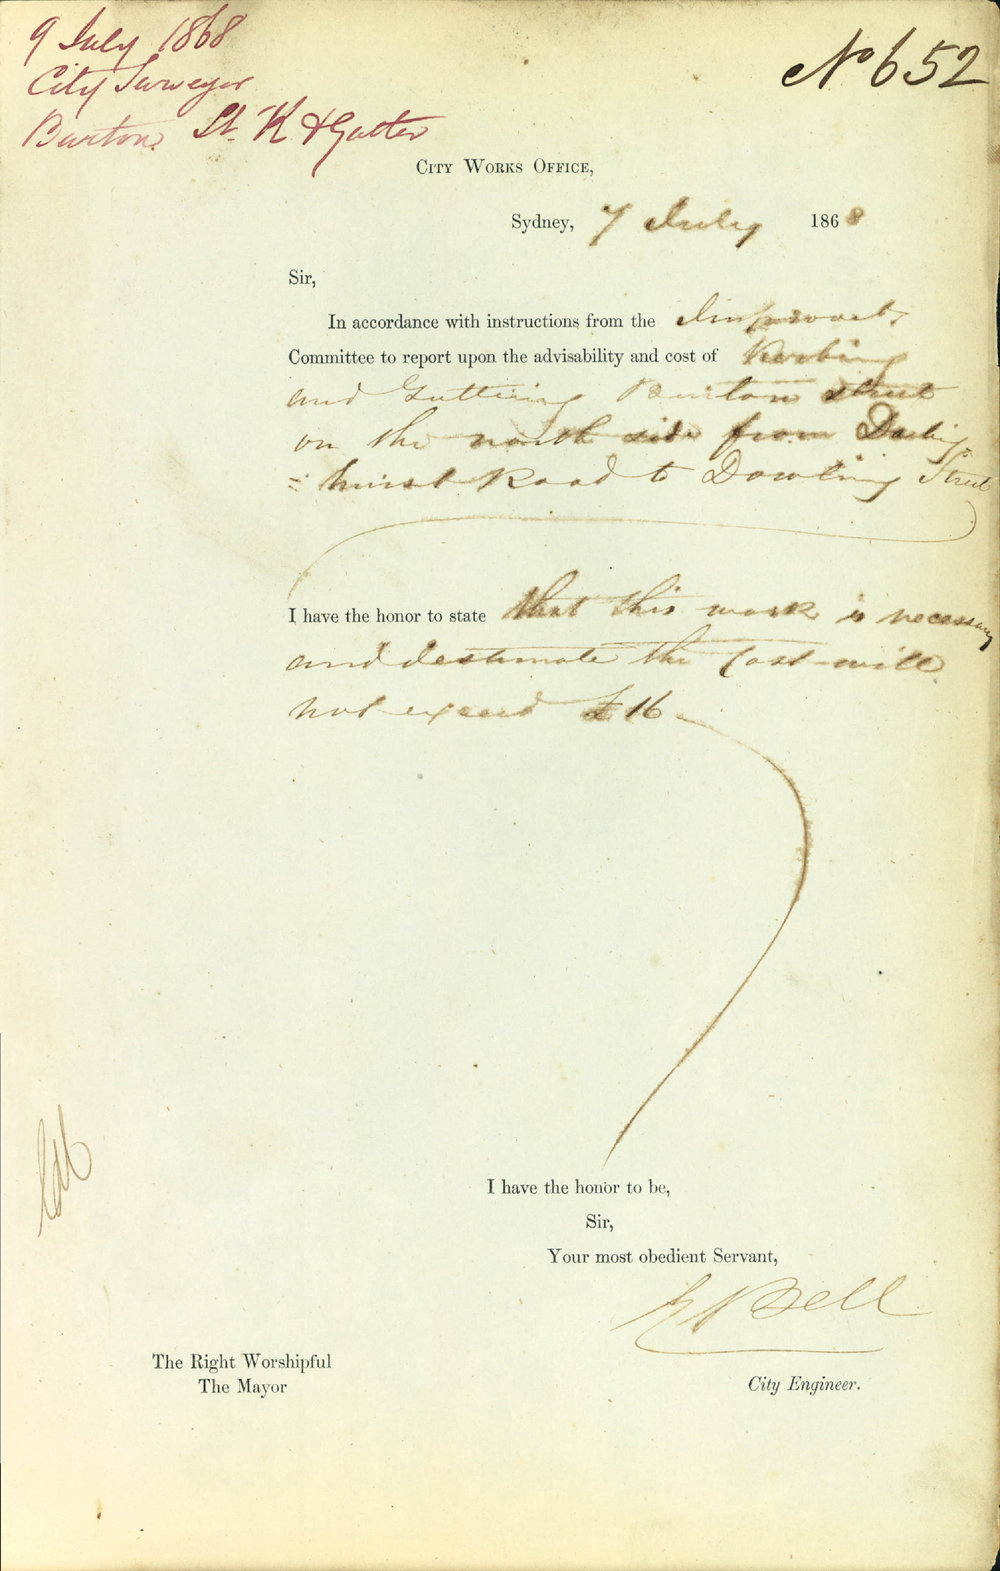 9 July 1868
City Surveyor
Burton St. K & Gutter
No 652
CITY WORKS OFFICE,
Sydney, 7 July 1868
Sir,
In accordance with instructions from the Improvet,
Committee to report upon the advisability and cost of Kerbing
and Guttering Burton street
on the north side from Darling-
= hurst Road to Dowling Street
I have the honor to state that this work is necessary
and I estimate the cost will
not exceed £16
I have the honor to be,
Sir,
Your most obedient Servant,
E Bell
The Right Worshipful
The Mayor
City Engineer.